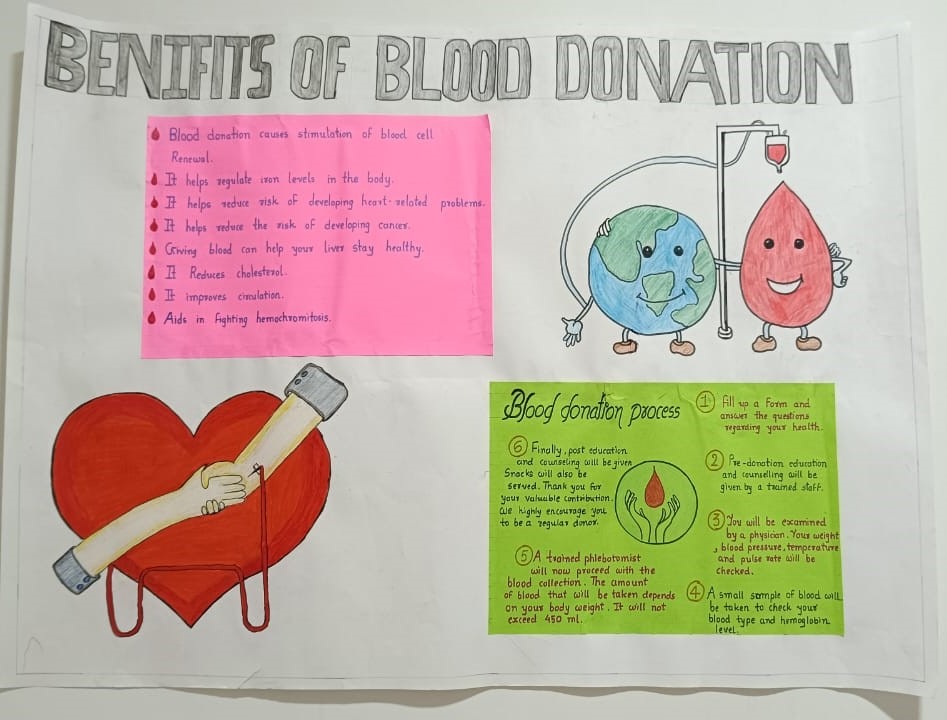 BENIFITS OF BLOOD DONATION
Blood donation causes stimulation of blood cell
Renewal.
It helps regulate iron levels in the body.
It helps reduce risk of developing heart-related problems.
It helps reduce the risk of developing cancer.
Giving blood can help your liver stay healthy.
It Reduces cholesterol.
It improves circulation.
Aids in fighting hemochromitosis.
Blood donation process
1 Fill up a Form and
answer the questions
regarding your health.
2 Pre-donation education
and counselling will be
given by a trained staff.
3 You will be examined
by a physician. Your weight
, blood pressure, temperature
and pulse rate will be
checked.
4 A small sample of blood will
be taken to check your
blood type and hemoglobin
level.
5 A trained phlebotomist
will now proceed with the
blood collection. The amount
of blood that will be taken depends
on your body weight. It will not
exceed 450 ml.
6 Finally, post education
and counseling will be given
Snacks will also be
served. Thank you for
your valuable contribution.
We highly encourage you
to be a regular donor.